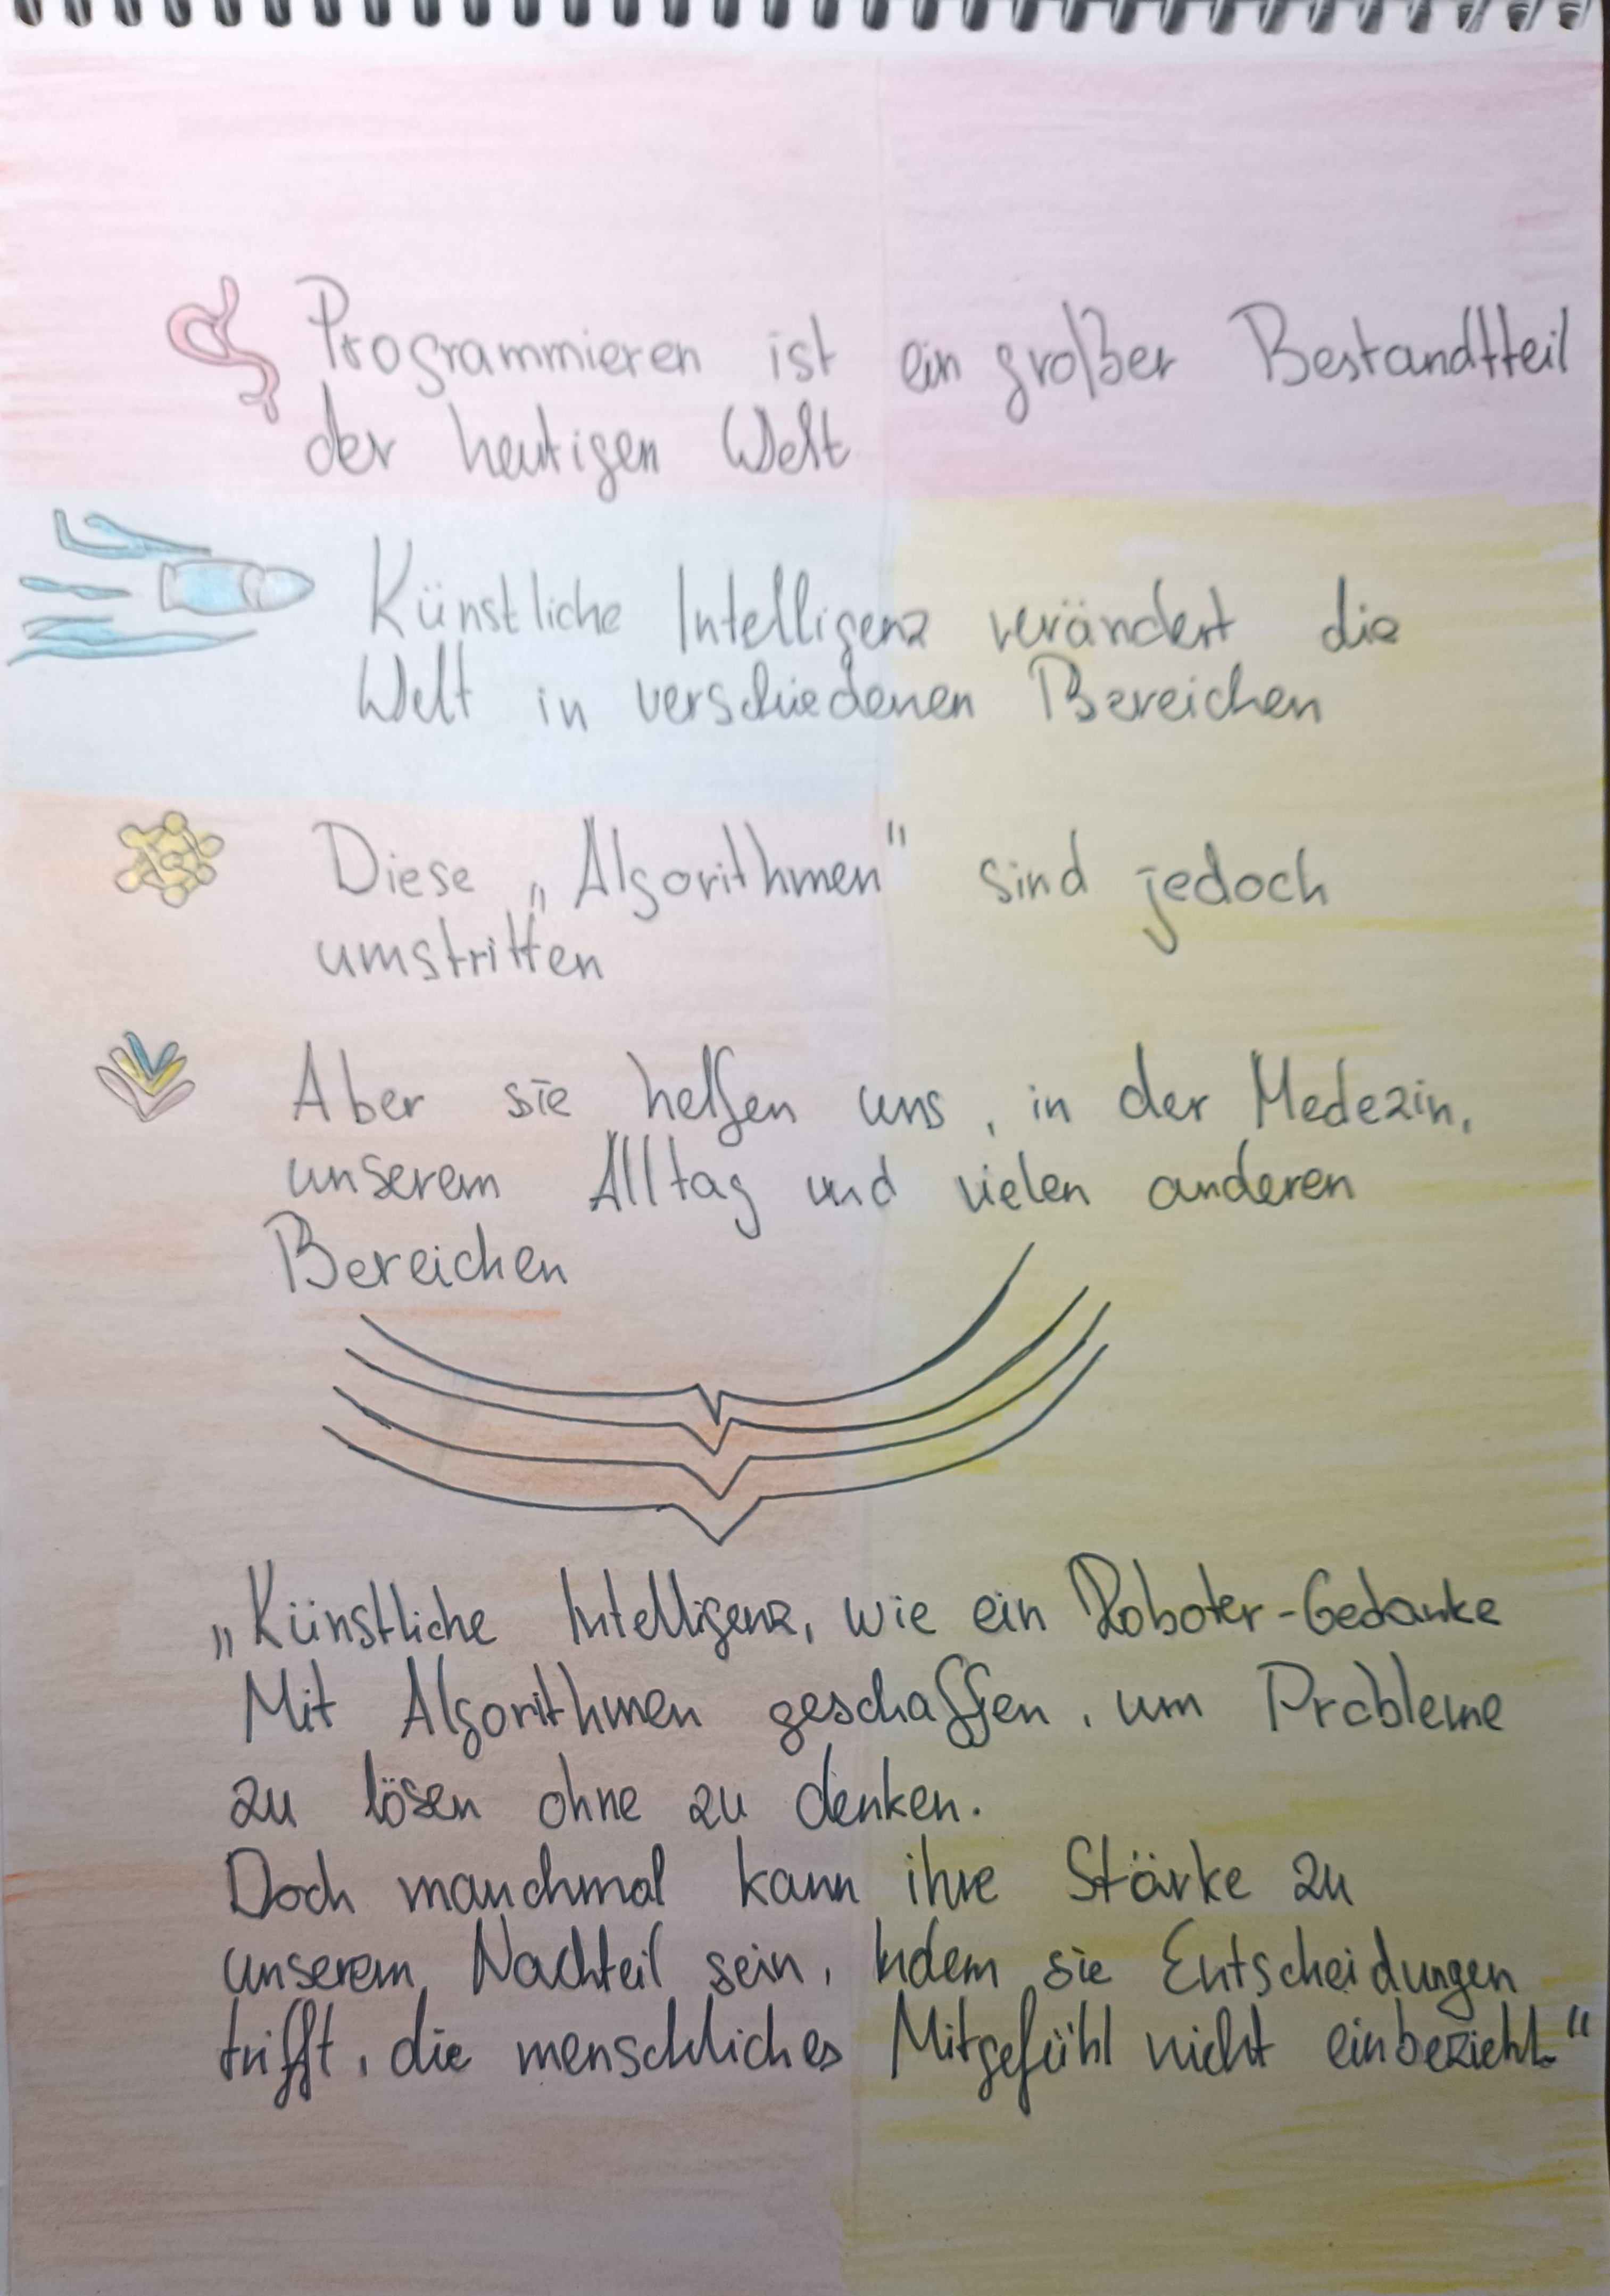 Programmieren ist ein großer Bestandtteil
der heutigen Welt
Künstliche Intelligenz verändert die
Welt in verschiedenen Bereichen
Diese „Algorithmen" sind jedoch
umstritten
Aber sie helfen uns, in der Medezin,
unserem Alltag und vielen anderen
Bereichen
„Künstliche Intelligenz, wie ein Roboter-Gedanke
Mit Algorithmen geschaffen, um Probleme
zu lösen ohne zu denken.
Doch manchmal kann ihre Stärke zu
unserem Nachteil sein, Indem sie Entscheidungen
trifft, die menschliches Mitgefühl nicht einbezieht."